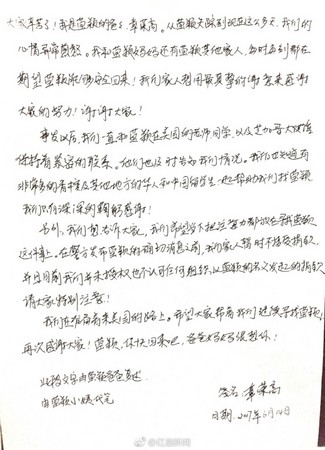 大家辛苦了！我是莹颖的爸爸章荣高。从莹颖失联到现在这么多天，我们的
心情异常焦急。我和莹颖妈妈还有莹颖其他家人，每时每刻都在
期望莹颖能够安全回来！我们家人想用最真挚的谢意来感谢
大家的努力！谢谢大家！
事发以后，我们一直和莹颖在美国的老师同学，以及芝加哥大使馆
保持着紧密的联系。他们也及时告知我们情况。我们也知道有
非常多的香槟及其他地方的华人和中国留学生一起帮助我们找莹颖
我们只有深深的鞠躬感谢！
另外，我们想告诉大家，我们希望当下把注意力都放在寻找莹颖
这件事上。在警方发布莹颖的确切消息之前，我们家人暂时不接受捐款，
并且目前我们并未授权也不认可任何组织，以莹颖的名义发起的捐款
请大家特别注意！
我们正准备着来美国的路上。希望大家帮着我们继续寻找莹颖，
再次感谢大家！莹颖，你快回来吧，爸爸妈妈很想你！
此段文字由莹颖爸爸口述
由莹颖小姨代笔
签名：章荣高
日期：2017年6月14日
@红星新闻